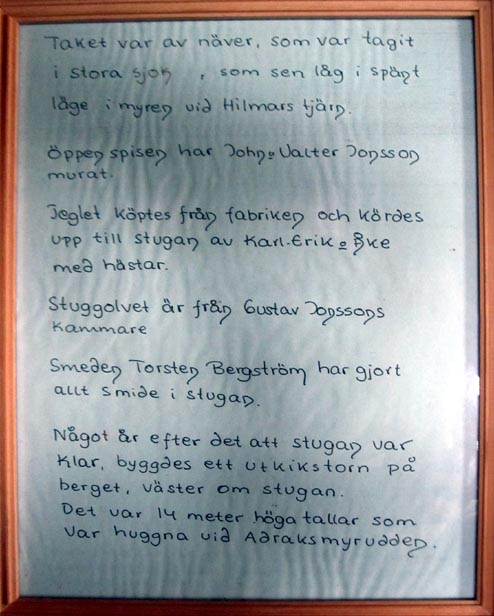 Taket var av näver, som var tagit
i stora sjok , som sen låg i spänt
läge i myren vid Hilmars tjärn.
Öppen spisen har John o Valter Jonsson
murat.
Teglet köptes från fabriken och kördes
upp till stugan av Karl-Erik o Åke
med hästar.
Stuggolvet är från Gustav Jonssons
kammare
Smeden Torsten Bergström har gjort
allt smide i stugan.
Något år efter det att stugan var
klar, byggdes ett utkikstorn på
berget, väster om stugan.
Det var 14 meter höga tallar som
var huggna vid Adraksmyrudden.